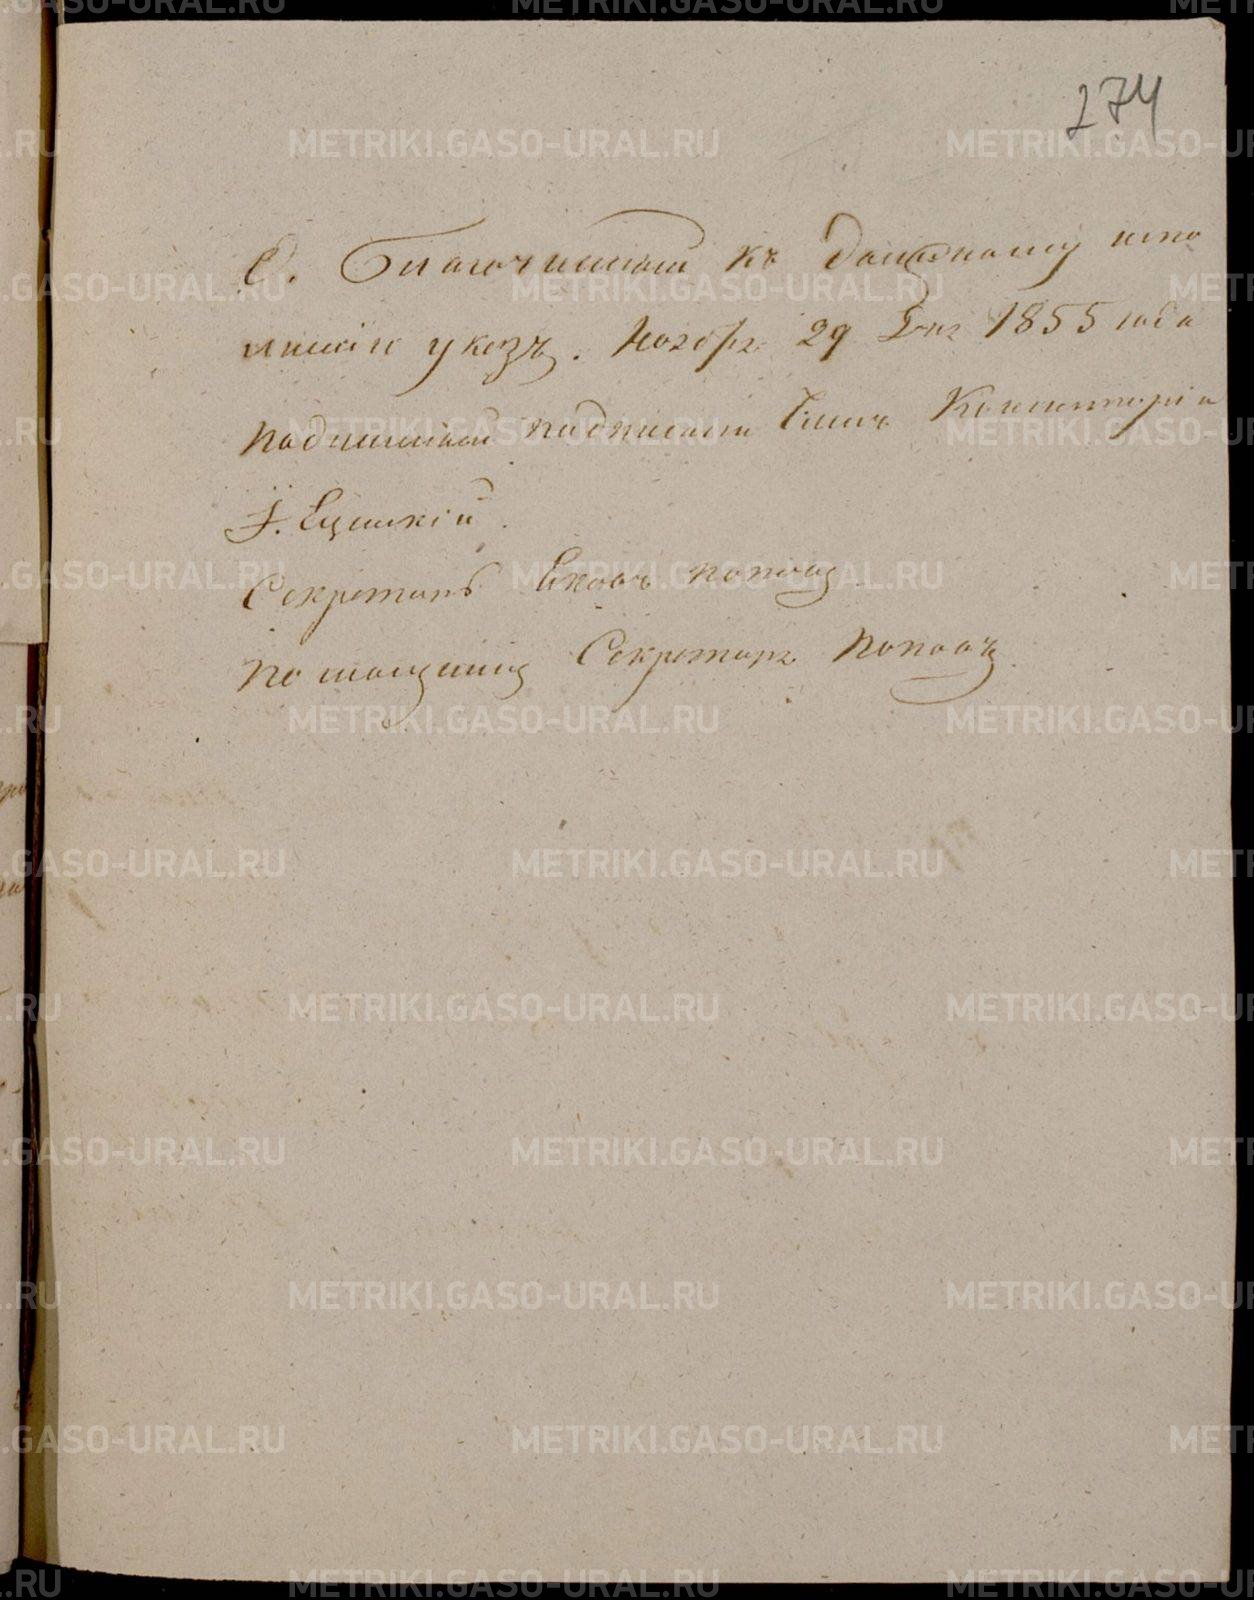 274
О. Благочинный къ должному испо
лненiю указъ. Ноября 29 дня 1855 года
Подлинный подписали Членъ Консисторiи
Секретарь Поповъ
Помощникъ Секретаря Поповъ
METRIKI.GASO-URAL.RU